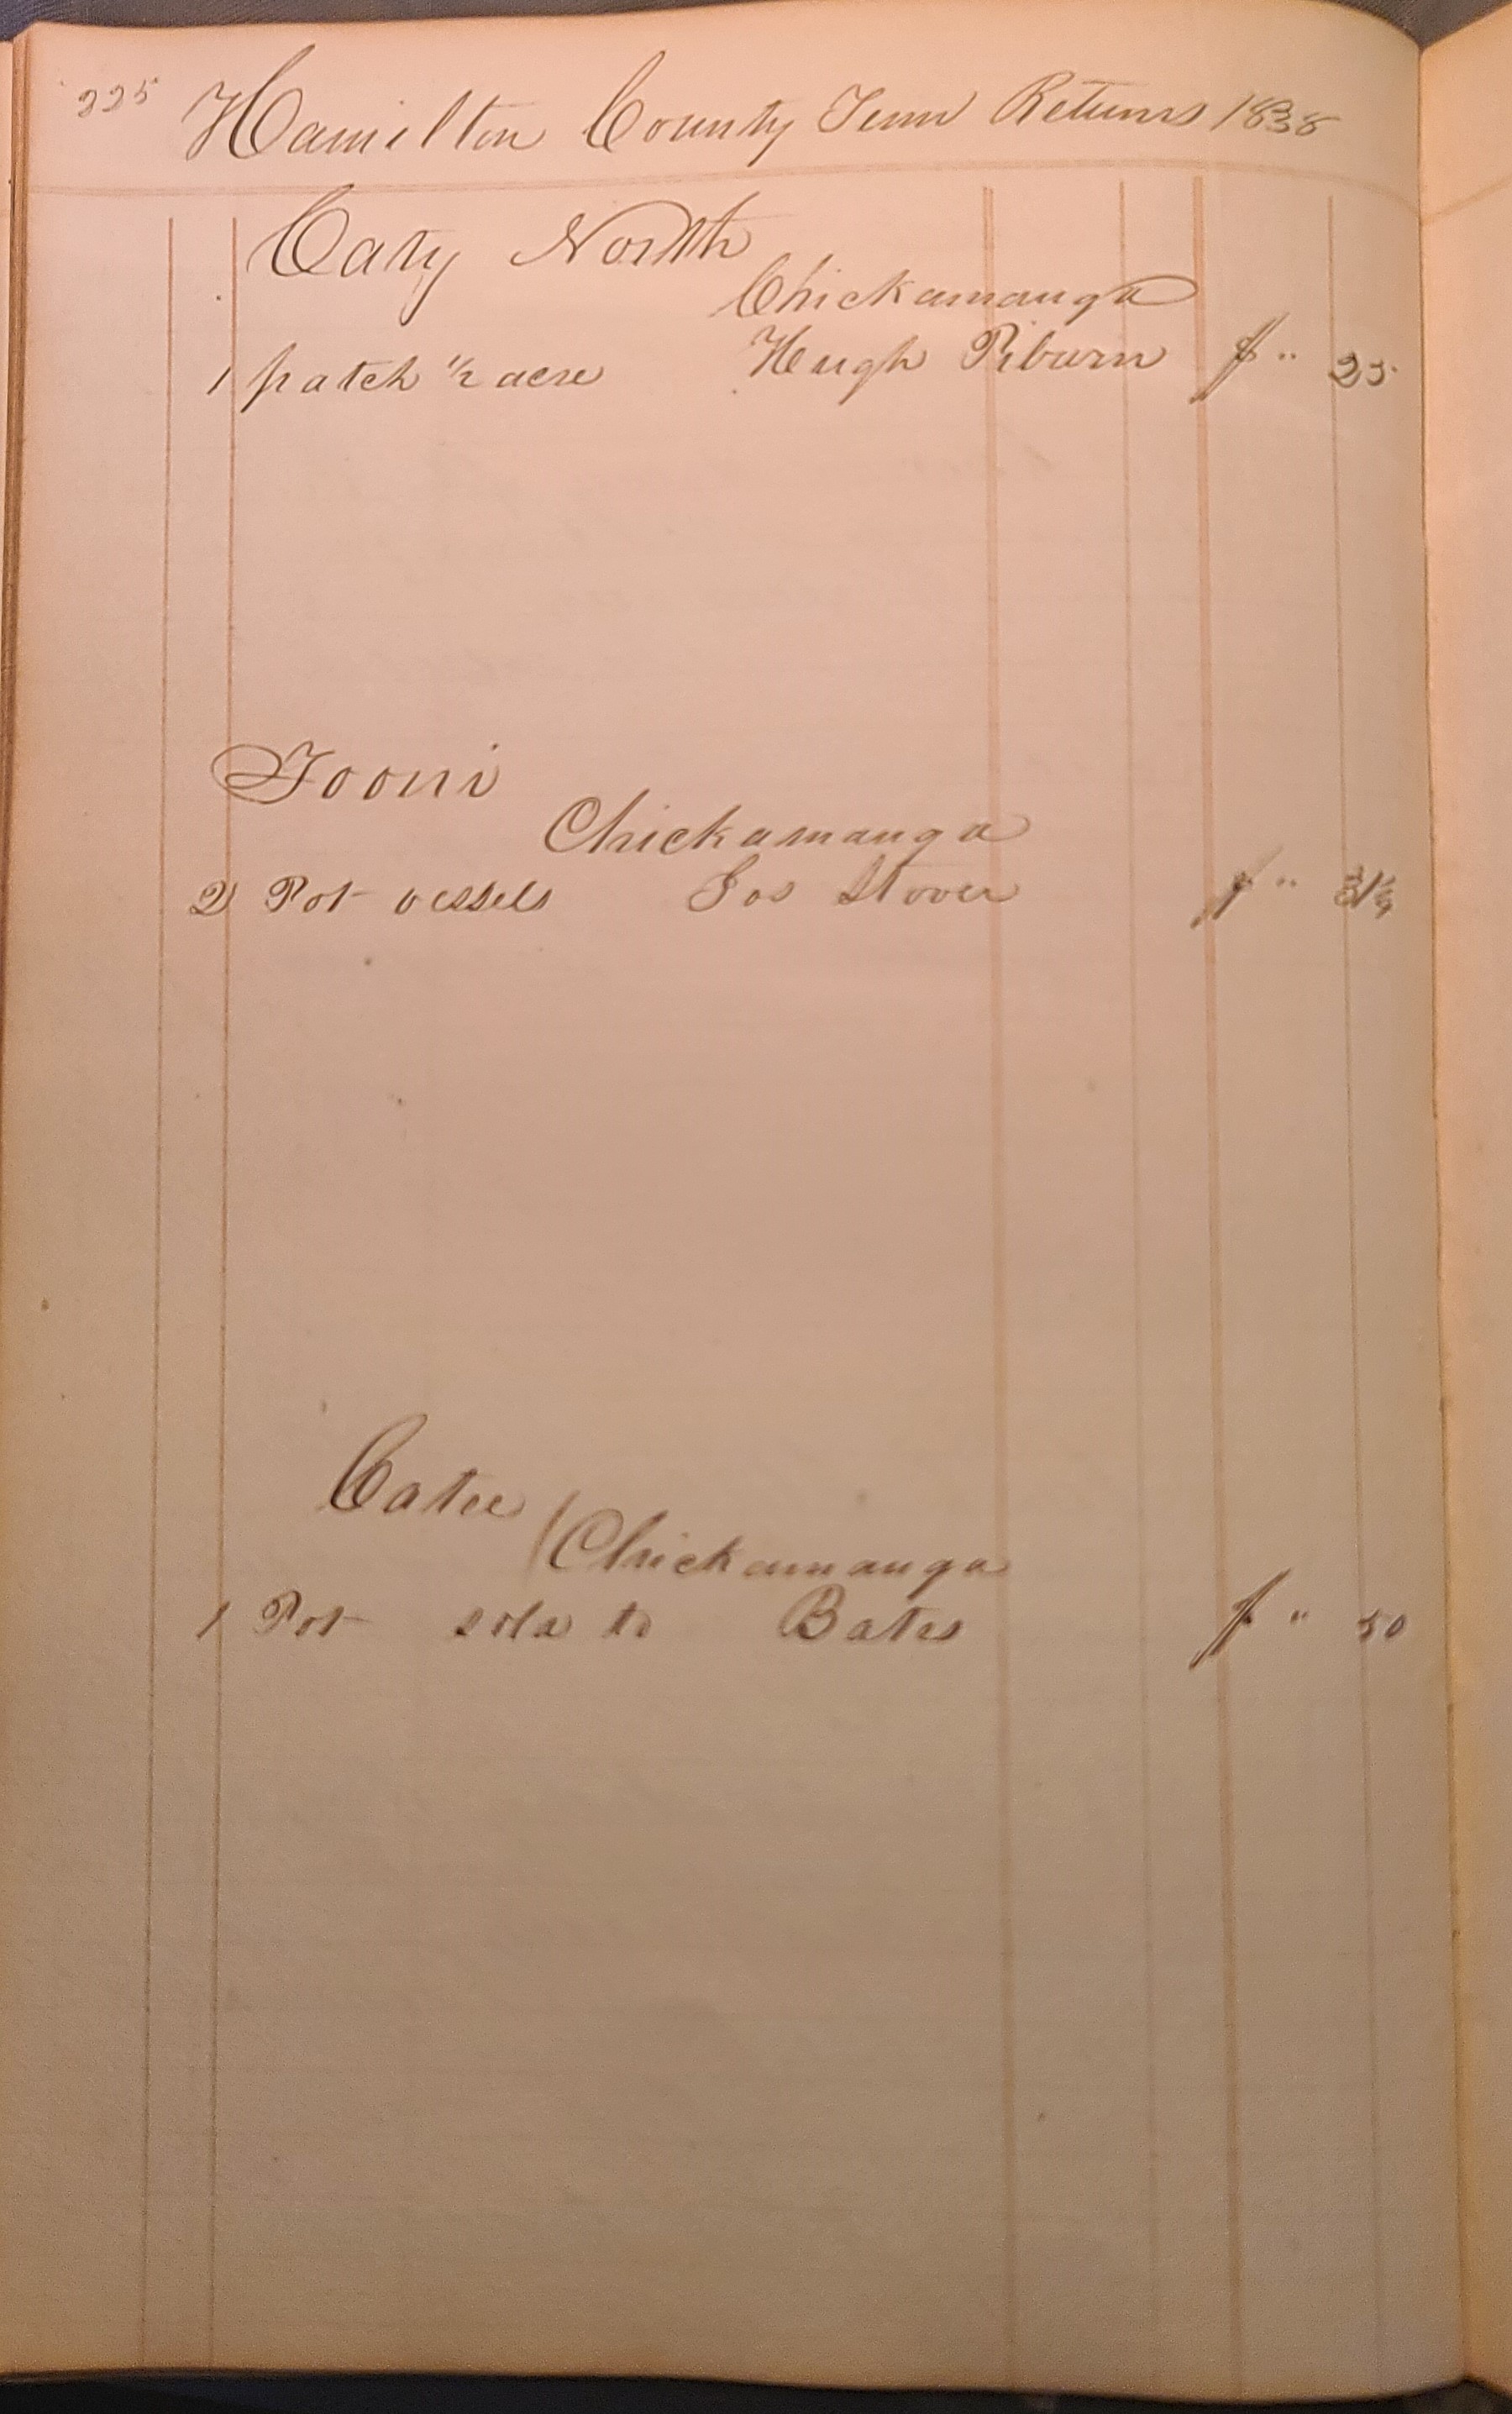 225 Hamilton County Tenn Returns 1838
Caty North
Chickamauga
1 patch 1/2 acre Hugh Piburn $ " 25
Tooni
Chickamauga
2 Pot vessels Jos Stover $ " 31 1/4
Catee
Chickamauga
1 Pot sold to Bates $ " 50